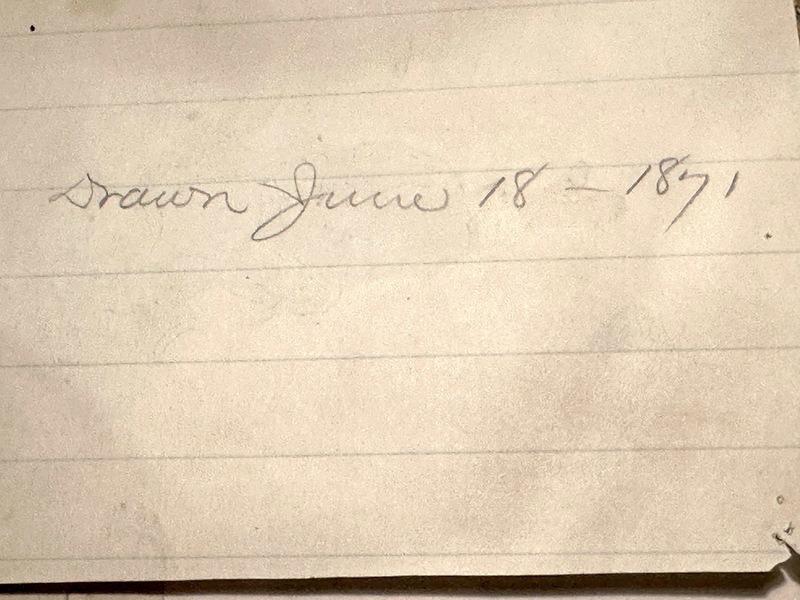 Drawn June 18 - 1871